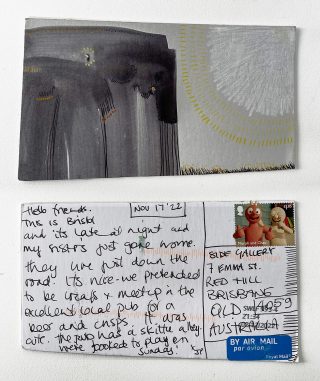 Hello friends.
This is Bristol
and its late at night and
my sisters just gone home.
they live just down the
road. Its nice - we pretended
to be locals & meet up in the
excellent local pub for a
beer and crisps. It was
cute. the pub has a skittle alley
we're booked to play on
Sunday. JP
Nov 17 '22
Morph and Chas
SIDE GALLERY
7 EMMA ST.
RED HILL
BRISBANE
QLD 4059
AUSTRALIA
BY AIR MAIL
par avion
Royal Mail